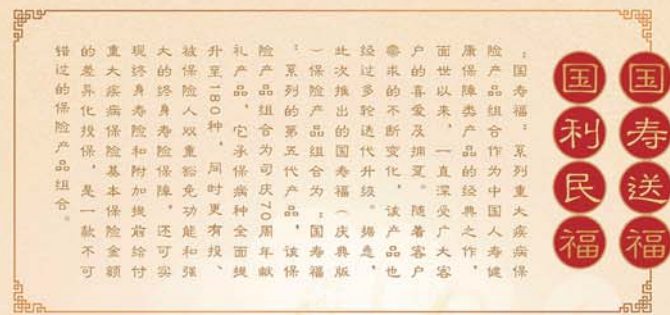 国寿送福
国利民福
“国寿福”系列重大疾病保
险产品组合作为中国人寿健
康保障类产品的经典之作，
面世以来，一直深受广大客
户的喜爱及拥趸。随着客户
需求的不断变化，该产品也
经过多轮迭代升级。据悉，
此次推出的国寿福（庆典版
）保险产品组合为“国寿福
”系列的第五代产品，该保
险产品组合为司庆70周年献
礼产品，它承保病种全面提
升至180种，同时更有投、
被保险人双重豁免功能和强
大的终身寿险保障，还可实
现终身寿险和附加提前给付
重大疾病保险基本保险金额
的差异化投保，是一款不可
错过的保险产品组合。